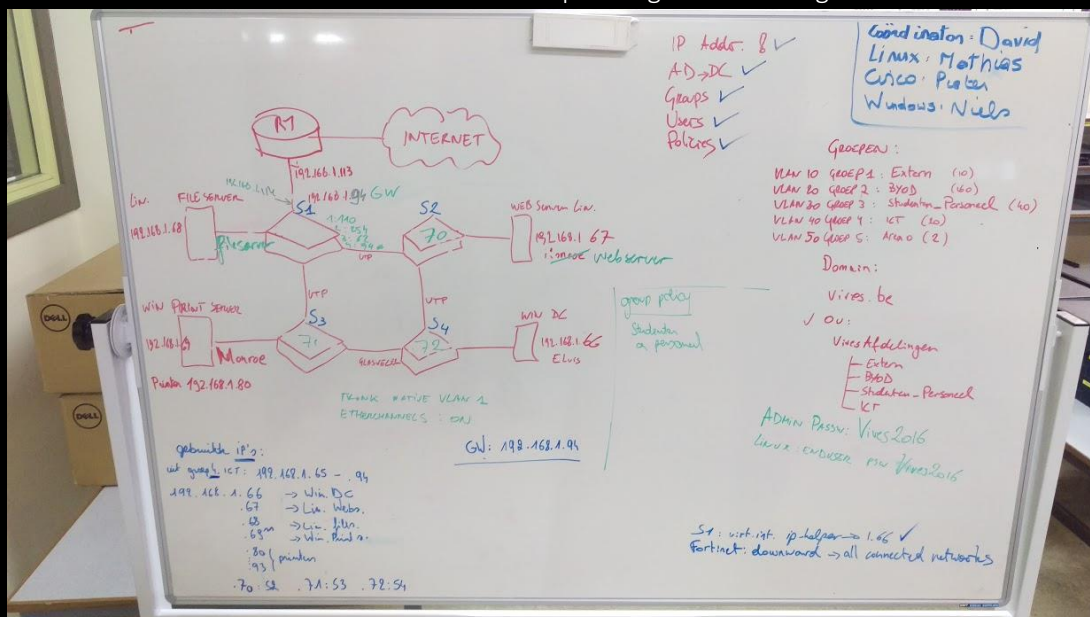 IP Addr. 8 ✓
AD→DC ✓
Groups ✓
Users ✓
Policies ✓
Coördinator: David
Linux: Mathias
Cisco: Pieter
Windows: Niels
R1
INTERNET
192.168.1.113
192.168.1.94 GW
Lin. FILESERVER
192.168.1.68
fileserver
S1
1.110
UTP
S2
70
WEB Server Lin.
192.168.1.67
Webserver
UTP
UTP
WIN PRINT SERVER
192.168.1.69
Monroe
Printer 192.168.1.80
S3
71
GLASVEZEL
S4
72
WIN DC
192.168.1.66
ELvis
TRUNK NATIVE VLAN 1
ETHERCHANNELS : ON
group policy
Studenten
personeel
GROEPEN:
VLAN 10 GROEP 1 : Extern (10)
VLAN 20 GROEP 2 : BYOD (160)
VLAN 30 GROEP 3 : Studenten_Personeel (40)
VLAN 40 GROEP 4 : ICT (20)
VLAN 50 GROEP 5 : (2)
Domain:
Vives.be
✓ OU:
VivesAfdelingen
Extern
BYOD
Studenten_Personeel
ICT
ADMIN PASSW: Vives2016
LINUX ENDUSER PSW Vives2016
gebruikte IP's:
groep 4 ICT: 192.168.1.65 - .94
192.168.1.66 → Win. DC
.67 → Lin. Webs.
.68 → Lin. files.
.69 → Win. Prints.
.80
.93 } printers
.70: S2 .71: S3 .72: S4
GW: 192.168.1.94
S1: virt.int. ip-helper → 1.66 ✓
Fortinet: downward → all connected networks
DELL
DELL